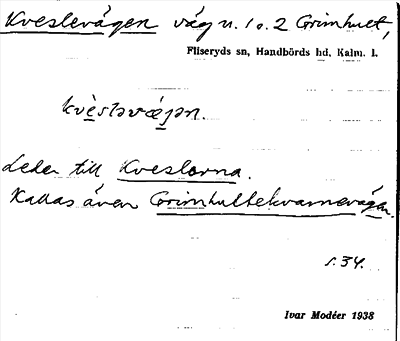 Kveslevägen väg n. 1 o. 2 Grimhult,
Fliseryds sn, Handbörds hd, Kalm. l.
kvèsləvæɟən.
Leder till Kveslorna.
Kallas även Grimhultekvarnevägen.
s. 34.
Ivar Modéer 1938